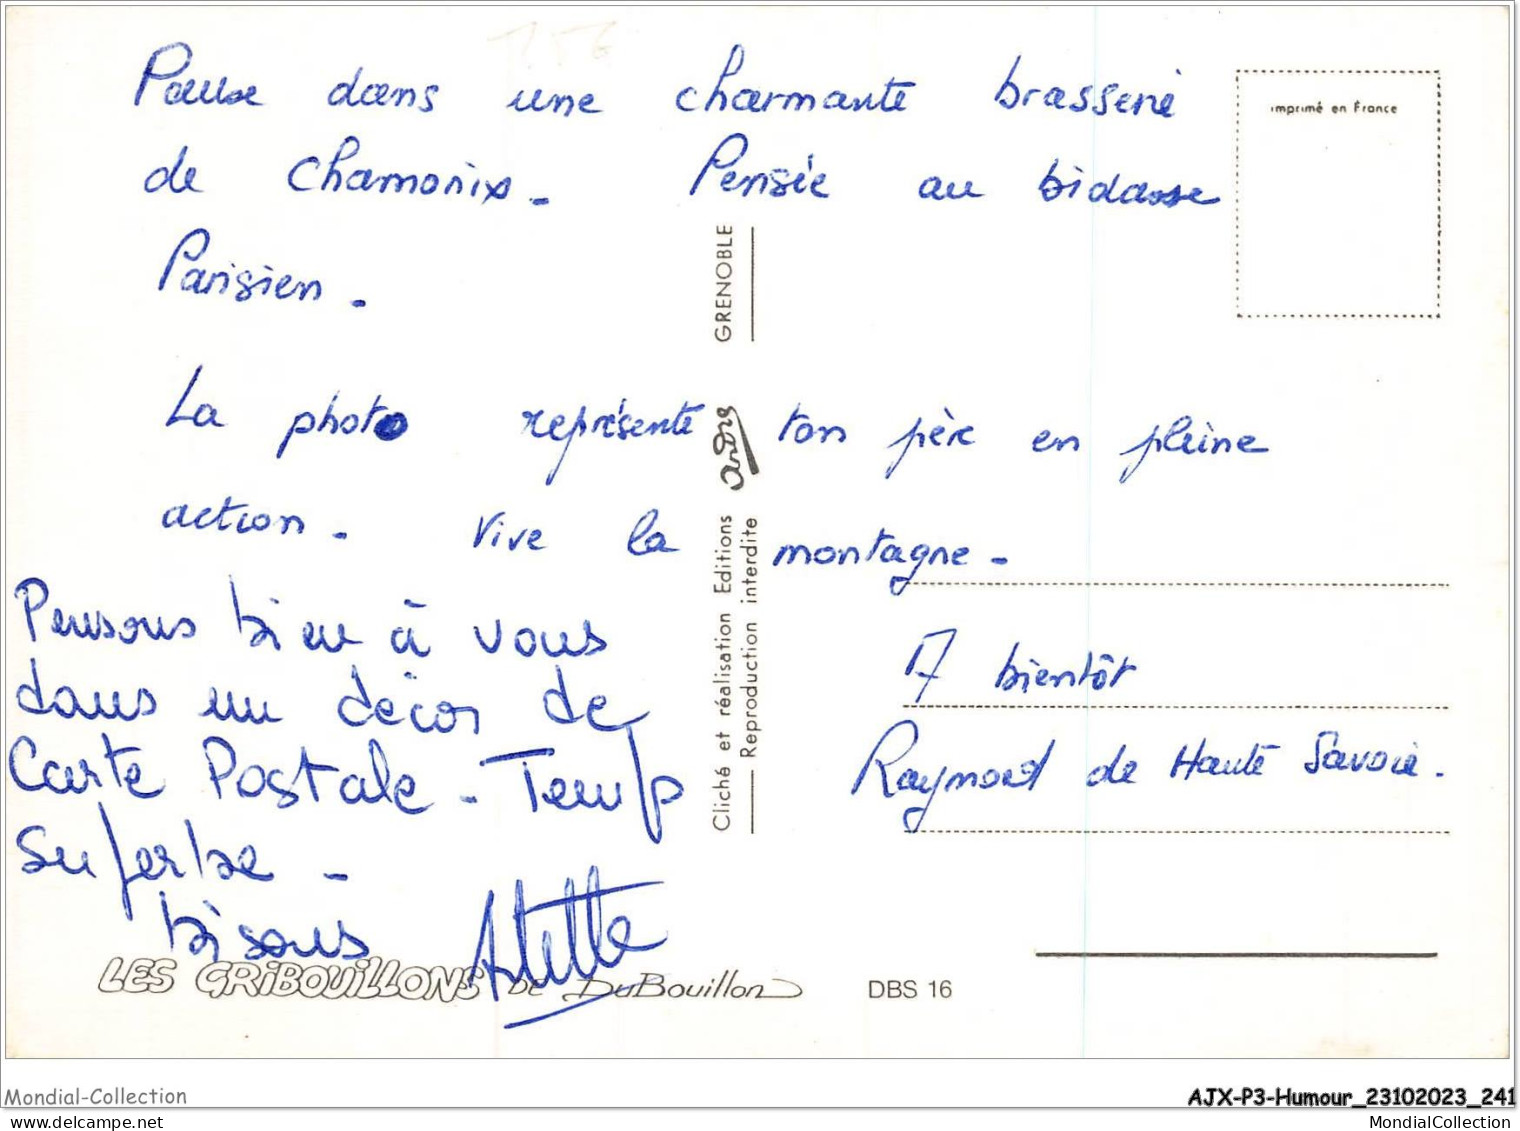 Pause dans une charmante brasserie
de Chamonix - Pensée au bidasse
Parisien -
La photo représente ton père en pleine
action - Vive la montagne -
Pensons bien à vous
dans un décor de
Carte Postale - Temps
superbe -
bisous
A bientôt
Raymond de Haute Savoie -
imprimé en France
GRENOBLE
André
Cliché et réalisation Editions
Reproduction interdite
LES GRIBOUILLONS DE DuBouillon DBS 16
Mondial-Collection
AJX-P3-Humour_23102023_241
www.delcampe.net
MondialCollection